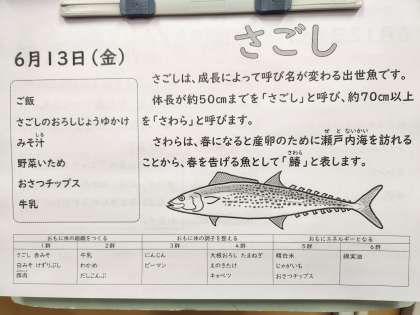 さごし
6月13日(金)
ご飯
さごしのおろしじょうゆかけ
みそ汁
しる
野菜いため
おさつチップス
牛乳
さごしは、成長によって呼び名が変わる出世魚です。
体長が約50cmまでを「さごし」と呼び、約70cm以上
を「さわら」と呼びます。
さわらは、春になると産卵のために瀬戸内海を訪れる
せとないかい
ことから、春を告げる魚として「鰆」と表します。
さわら
おもに体の組織をつくる おもに体の調子を整える おもにエネルギーとなる
1群 2群 3群 4群 5群 6群
さごし 赤みそ 牛乳 にんじん 大根おろし たまねぎ 精白米 綿実油
白みそ けずりぶし わかめ ピーマン えのきたけ じゃがいも
豚肉 だしこんぶ キャベツ おさつチップス